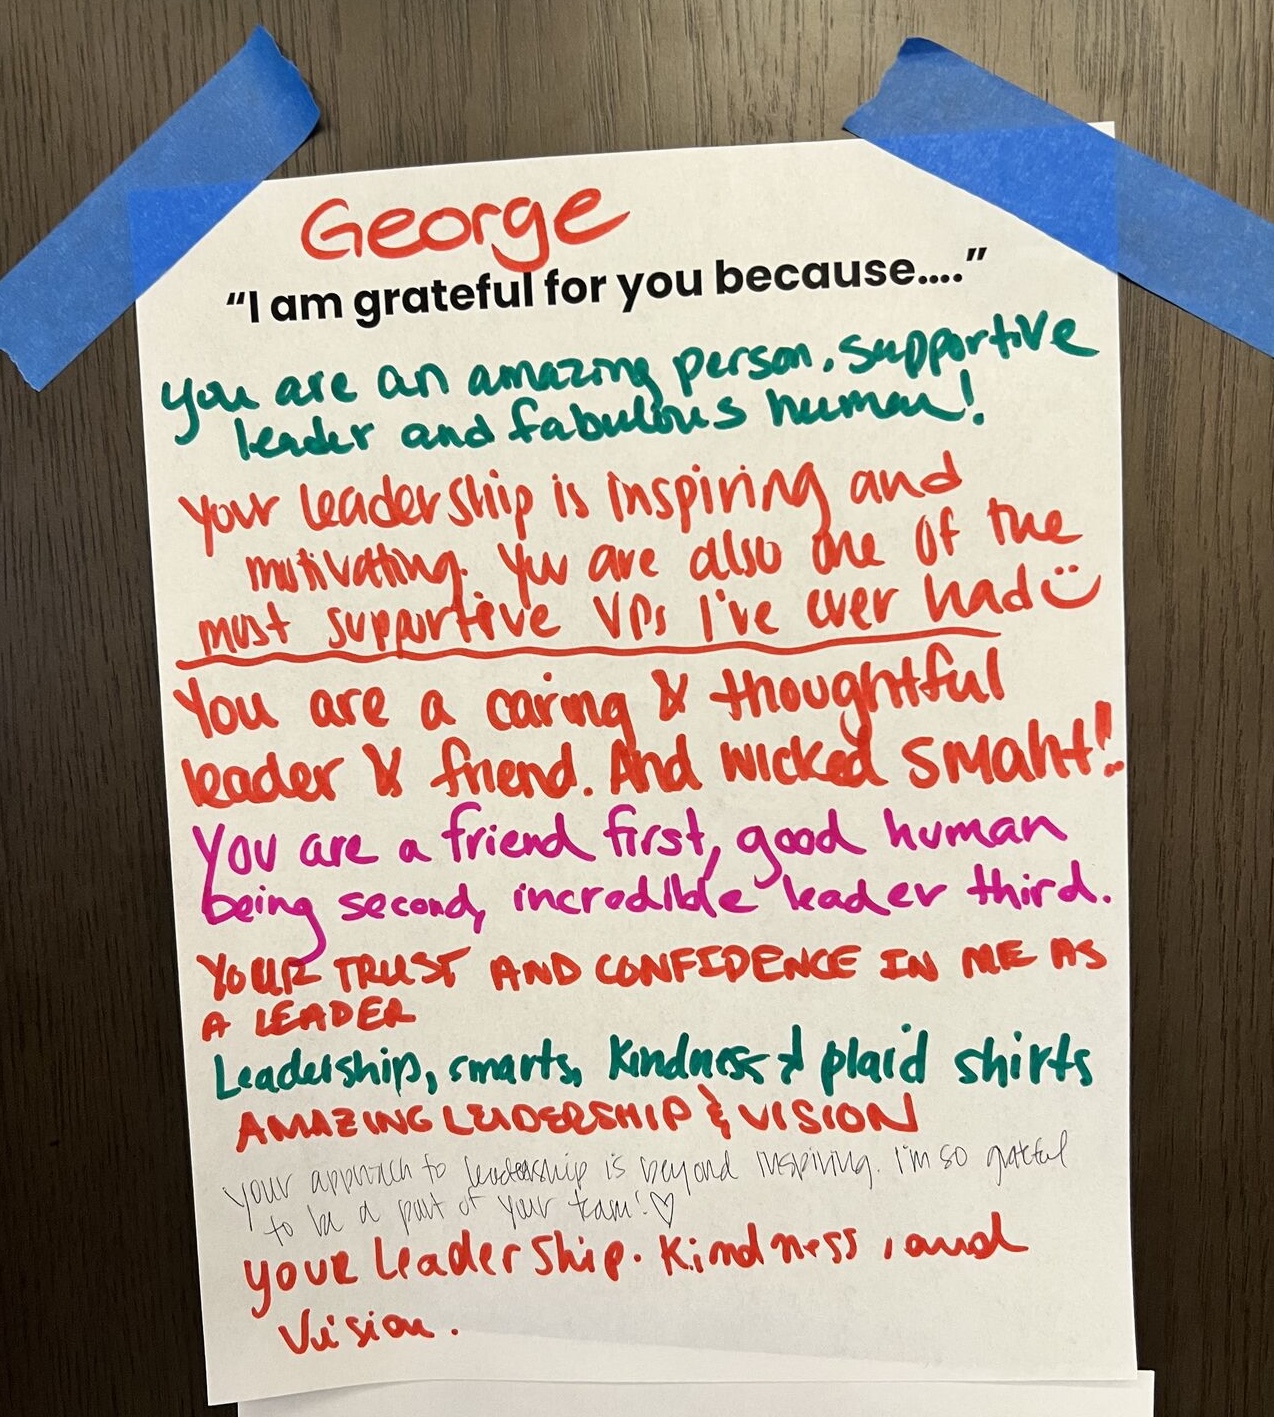 George
“I am grateful for you because....”
you are an amazing person, supportive
leader and fabulous human!
Your leadership is inspiring and
motivating. You are also one of the
most supportive VPs I've ever had
You are a caring & thoughtful
leader & friend. And wicked smaht!
You are a friend first, good human
being second, incredible leader third.
YOUR TRUST AND CONFIDENCE IN ME AS
A LEADER
Leadership, smarts, kindness & plaid shirts
AMAZING LEADERSHIP & VISION
your approach to leadership is beyond inspiring. I'm so grateful
to be a part of your team!♡
your Leadership. Kindness, and
Vision.